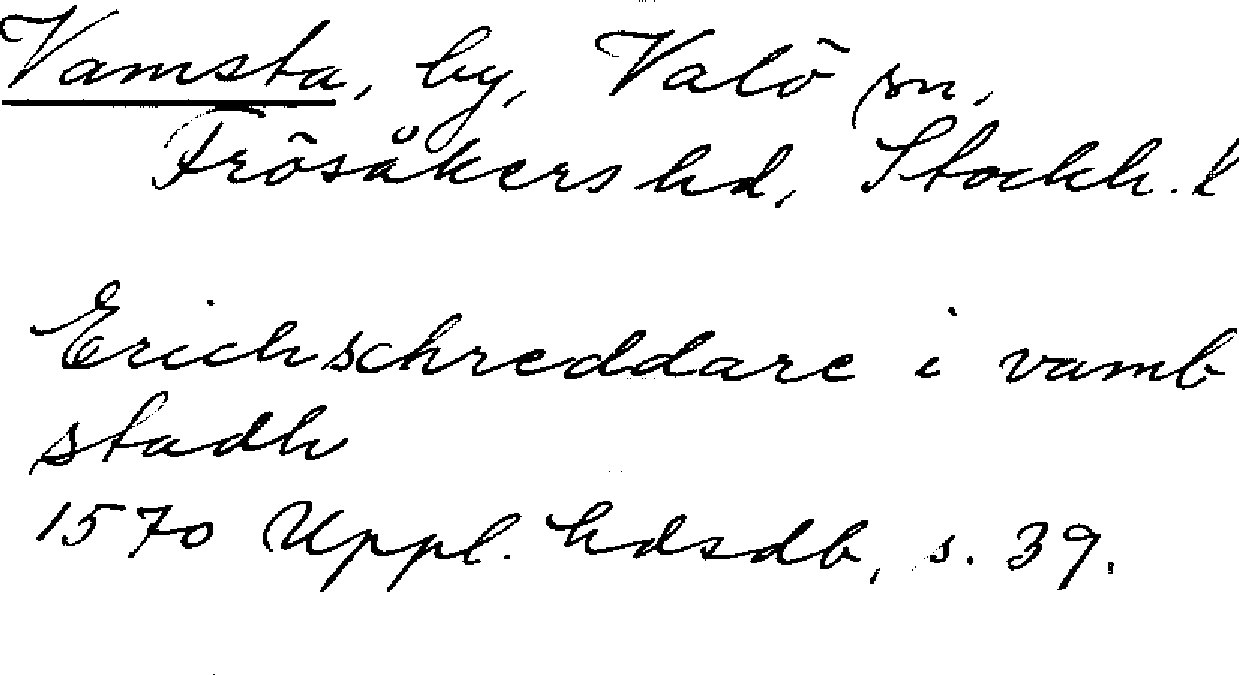 Vamsta, by, Valö sn,
Frösåkers hd, Stockh. l
Erich schreddare i vamb
stadh
1570 Uppl. hdsdb, s. 39.